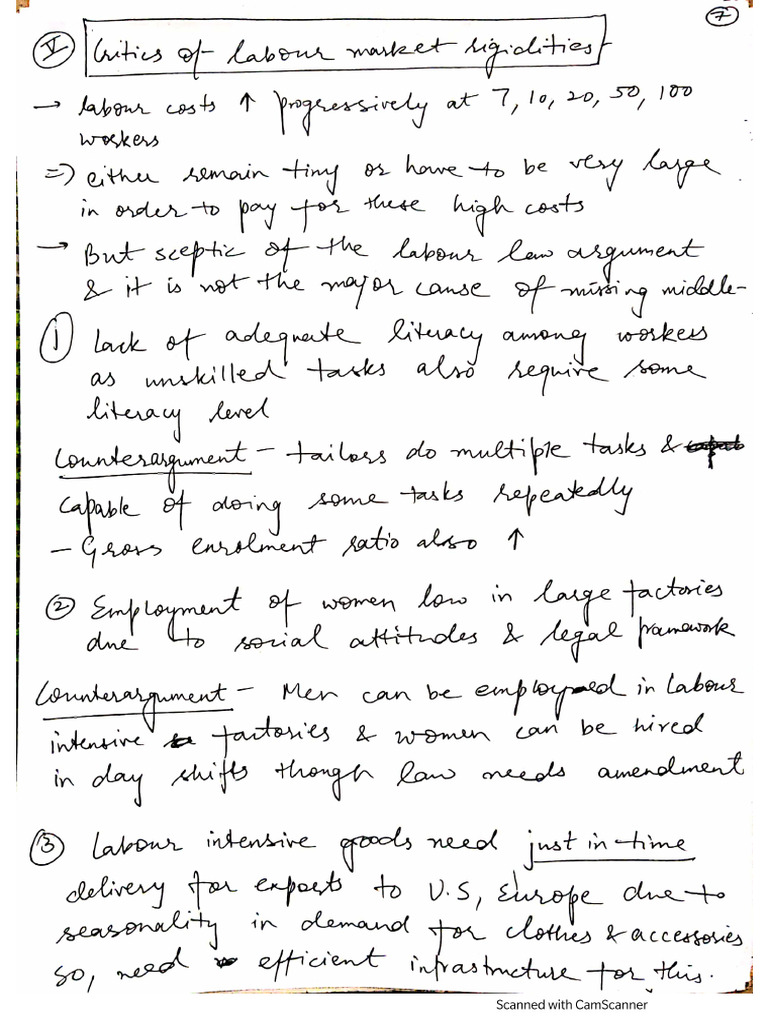 7
V Critics of labour market rigidities -
→ labour costs ↑ progressively at 7, 10, 20, 50, 100
workers
⇒ either remain tiny or have to be very large
in order to pay for these high costs
→ But sceptic of the labour law argument
& it is not the major cause of missing middle -
1 Lack of adequate literacy among workers
as unskilled tasks also require some
literacy level
Counterargument - tailors do multiple tasks &
capable of doing some tasks repeatedly
- Gross enrolment ratio also ↑
2 Employment of women low in large factories
due to social attitudes & legal framework
Counterargument - Men can be employed in labour
intensive factories & women can be hired
in day shifts though law needs amendment
3 Labour intensive goods need just in-time
delivery for exports to U.S, Europe due to
seasonality in demand for clothes & accessories
so, need efficient infrastructure for this.
Scanned with CamScanner